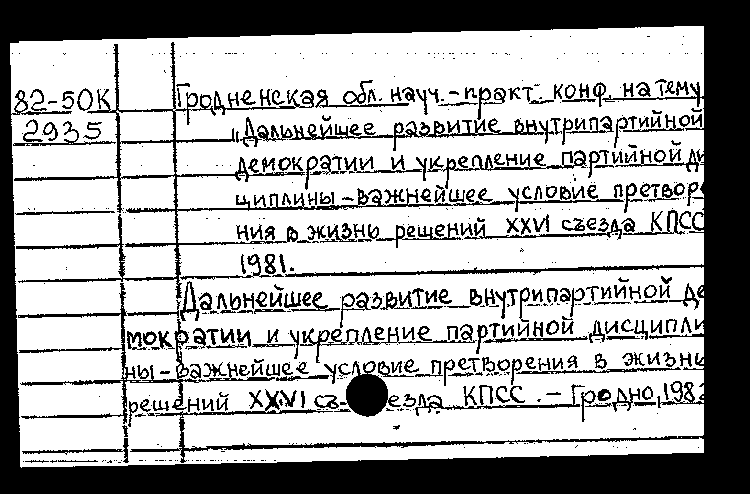 82-50К Гродненская обл. науч.-практ. конф. на тему
2935 „Дальнейшее развитие внутрипартийной
демократии и укрепление партийной ди
циплины-важнейшее условие претворе
ния в жизнь решений XXVI съезда КПСС
1981.
Дальнейшее развитие внутрипартийной де
мократии и укрепление партийной дисципли
ны-важнейшее условие претворения в жизнь
решений XXVI съ-езда КПСС. – Гродно, 1982